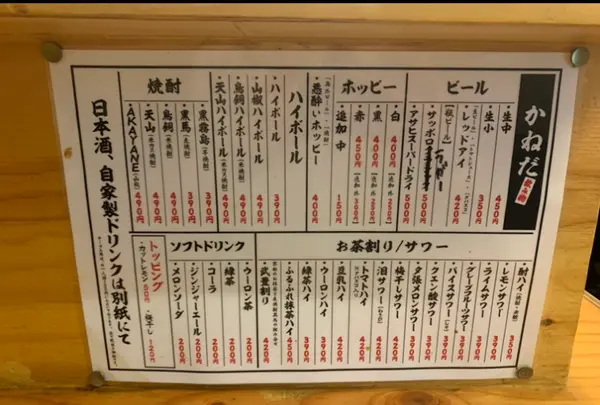 かねだ
ビール
・生中 450円
・生小 350円
・レッドアイ 420円
【瓶ビール】
・サッポロ 500円
・アサヒスーパードライ 500円
ホッピー
・白 400円
・黒 400円
・赤 450円
・追加 中 150円
・悪酔いホッピー 400円
ハイボール
・ハイボール 390円
・山椒ハイボール 490円
・鳥飼ハイボール 490円
・天山ハイボール 490円
焼酎
・黒霧島 390円
・黒馬 490円
・鳥飼 490円
・天山 490円
・AKAYANE 490円
日本酒、自家製ドリンクは別紙にて
お茶割り/サワー
・酎ハイ 350円
・レモンサワー 390円
・ライムサワー 390円
・グレープフルーツサワー 390円
・バイスサワー 390円
・クエン酸サワー 390円
・夕張メロンサワー 390円
・梅干しサワー 420円
・泪サワー 420円
・トマトハイ 420円
・豆乳ハイ 420円
・ウーロンハイ 390円
・緑茶ハイ 390円
・ふるふれ抹茶ハイ 450円
・武重割り 420円
ソフトドリンク
・ウーロン茶 200円
・緑茶 200円
・コーラ 200円
・ジンジャーエール 200円
・メロンソーダ 200円
トッピング
・カットレモン 50円 ・梅干し 120円